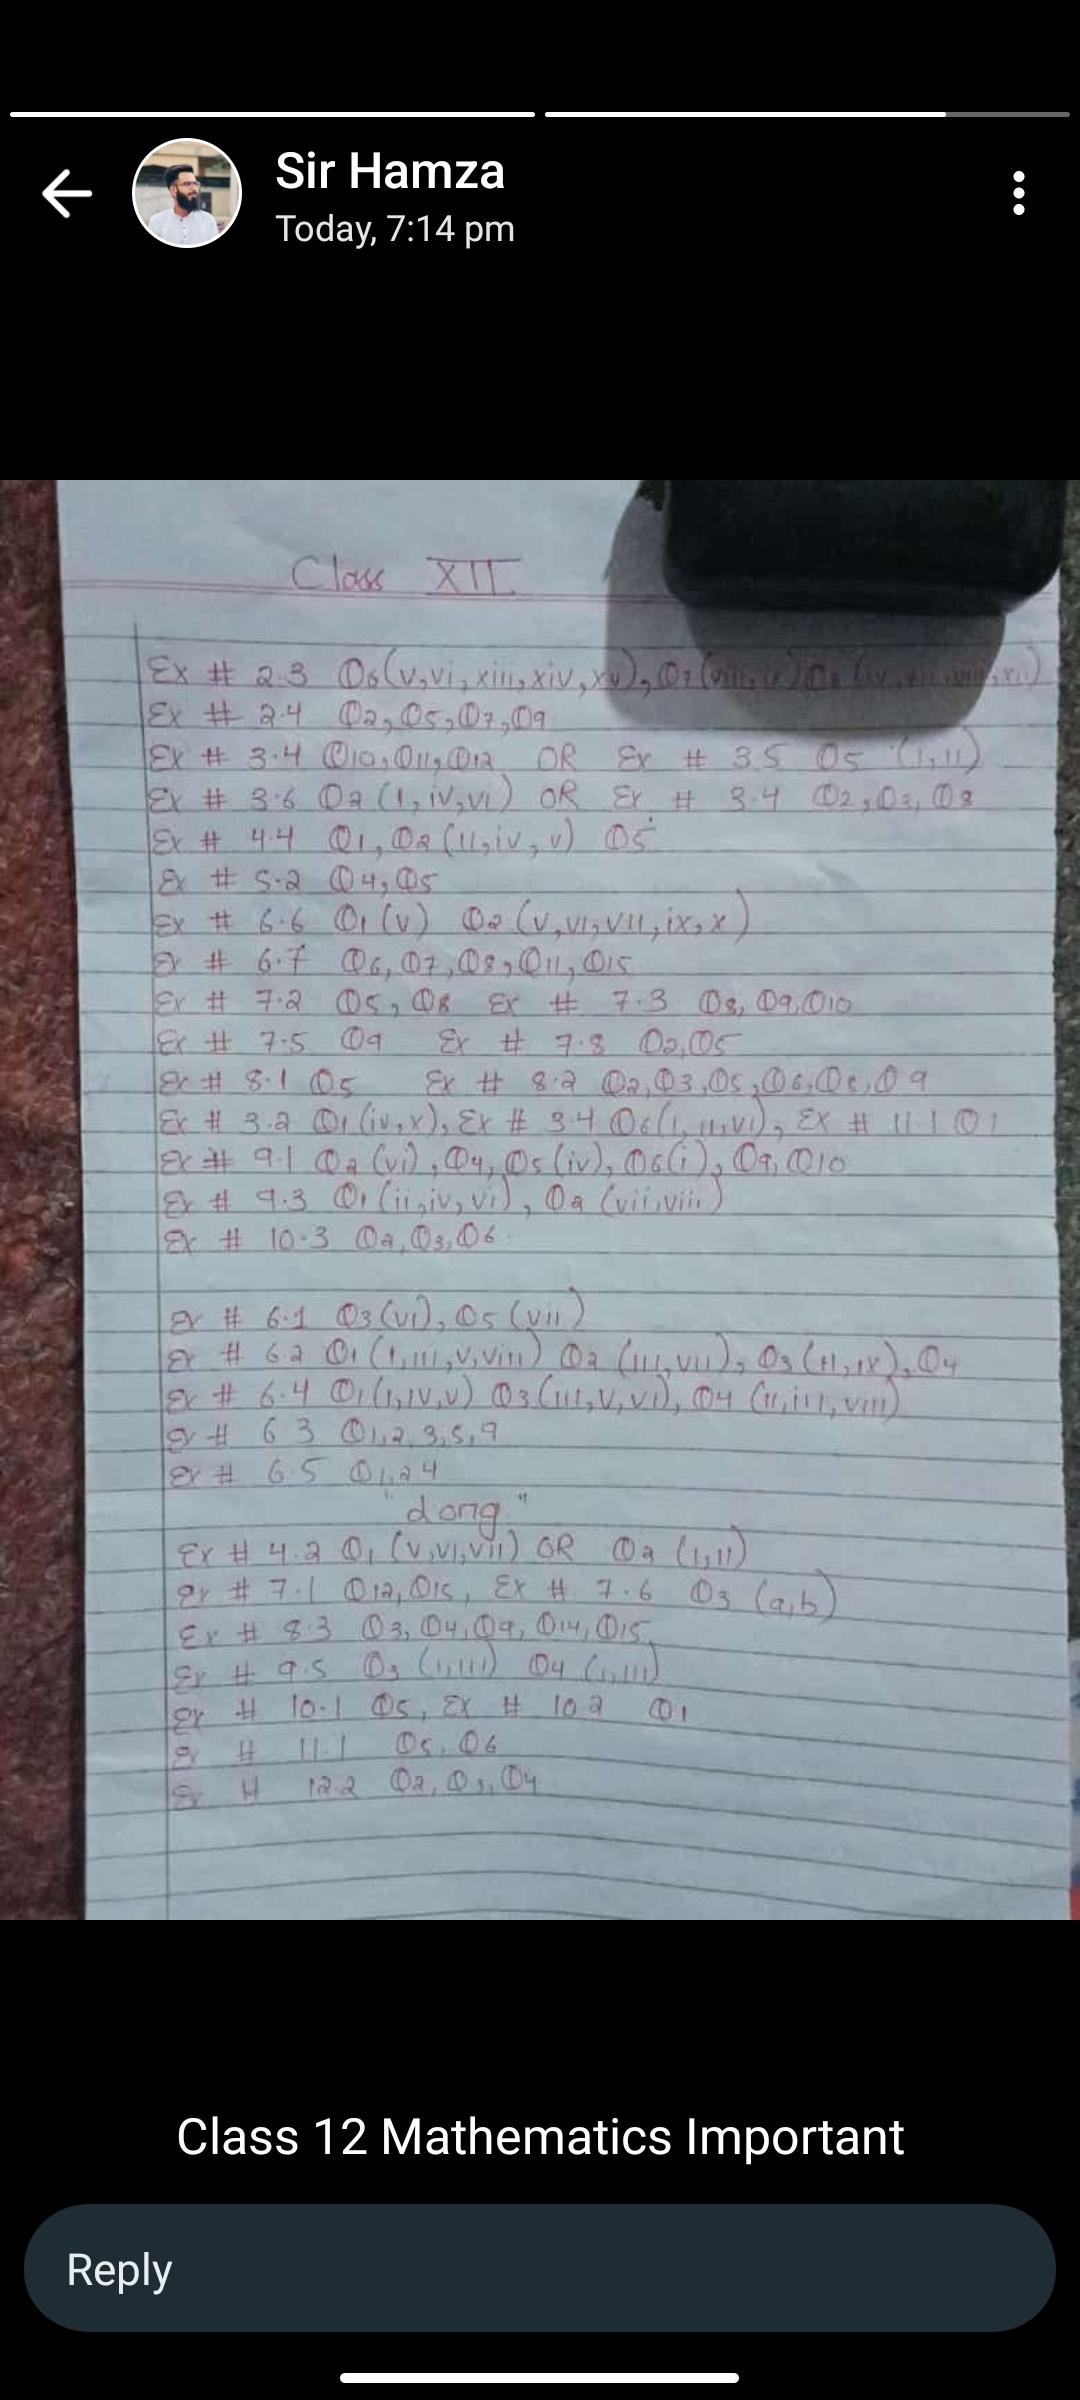 Sir Hamza
Today, 7:14 pm
Class XII
Ex # 2.3 Q6(v,vi,xiii,xiv,xv), Q7(viii,ix)
Ex # 2.4 Q2, Q5, Q7, Q9
Ex # 3.4 Q10, Q11, Q12 OR Ex # 3.5 Q5 (I,II)
Ex # 3.6 Q2 (I,iv,vi) OR Ex # 3.4 Q2, Q3, Q8
Ex # 4.4 Q1, Q2 (II,iv,v) Q5
Ex # 5.2 Q4, Q5
Ex # 6.6 Q1 (v) Q2 (v,vi,vii,ix,x)
Ex # 6.7 Q6, Q7, Q8, Q11, Q15
Ex # 7.2 Q5, Q8 Ex # 7.3 Q8, Q9, Q10
Ex # 7.5 Q9 Ex # 7.8 Q2, Q5
Ex # 8.1 Q5 Ex # 8.2 Q2, Q3, Q5, Q6, Q8, Q9
Ex # 3.2 Q1 (iv,x), Ex # 3.4 Q6(I,II,VI), Ex # 11.1 Q1
Ex # 9.1 Q2 (vi), Q4, Q5 (iv), Q6(i), Q9, Q10
Ex # 9.3 Q1 (ii,iv,vi), Q2 (vii,viii)
Ex # 10.3 Q2, Q3, Q6.
Ex # 6.1 Q3(vi), Q5 (vii)
Ex # 6.2 Q1 (I,III,V,VIII) Q2 (III,VII), Q3 (II,IX), Q4
Ex # 6.4 Q1(I,IV,V) Q3(III,V,VI), Q4 (II,III,VIII)
Ex # 6 3 Q1,2,3,5,9
Ex # 6.5 Q1,2 4
"Long"
Ex # 4.2 Q1 (V,VI,VII) OR Q2 (I,II)
Ex # 7.1 Q12, Q15, Ex # 7.6 Q3 (a,b)
Ex # 8.3 Q3, Q4, Q9, Q14, Q15
Ex # 9.5 Q3 (I,III) Q4 (I,III)
Ex # 10.1 Q5, Ex # 10 2 Q1
Ex # 11.1 Q5, Q6
Ex # 12.2 Q2, Q3, Q4
Class 12 Mathematics Important
Reply